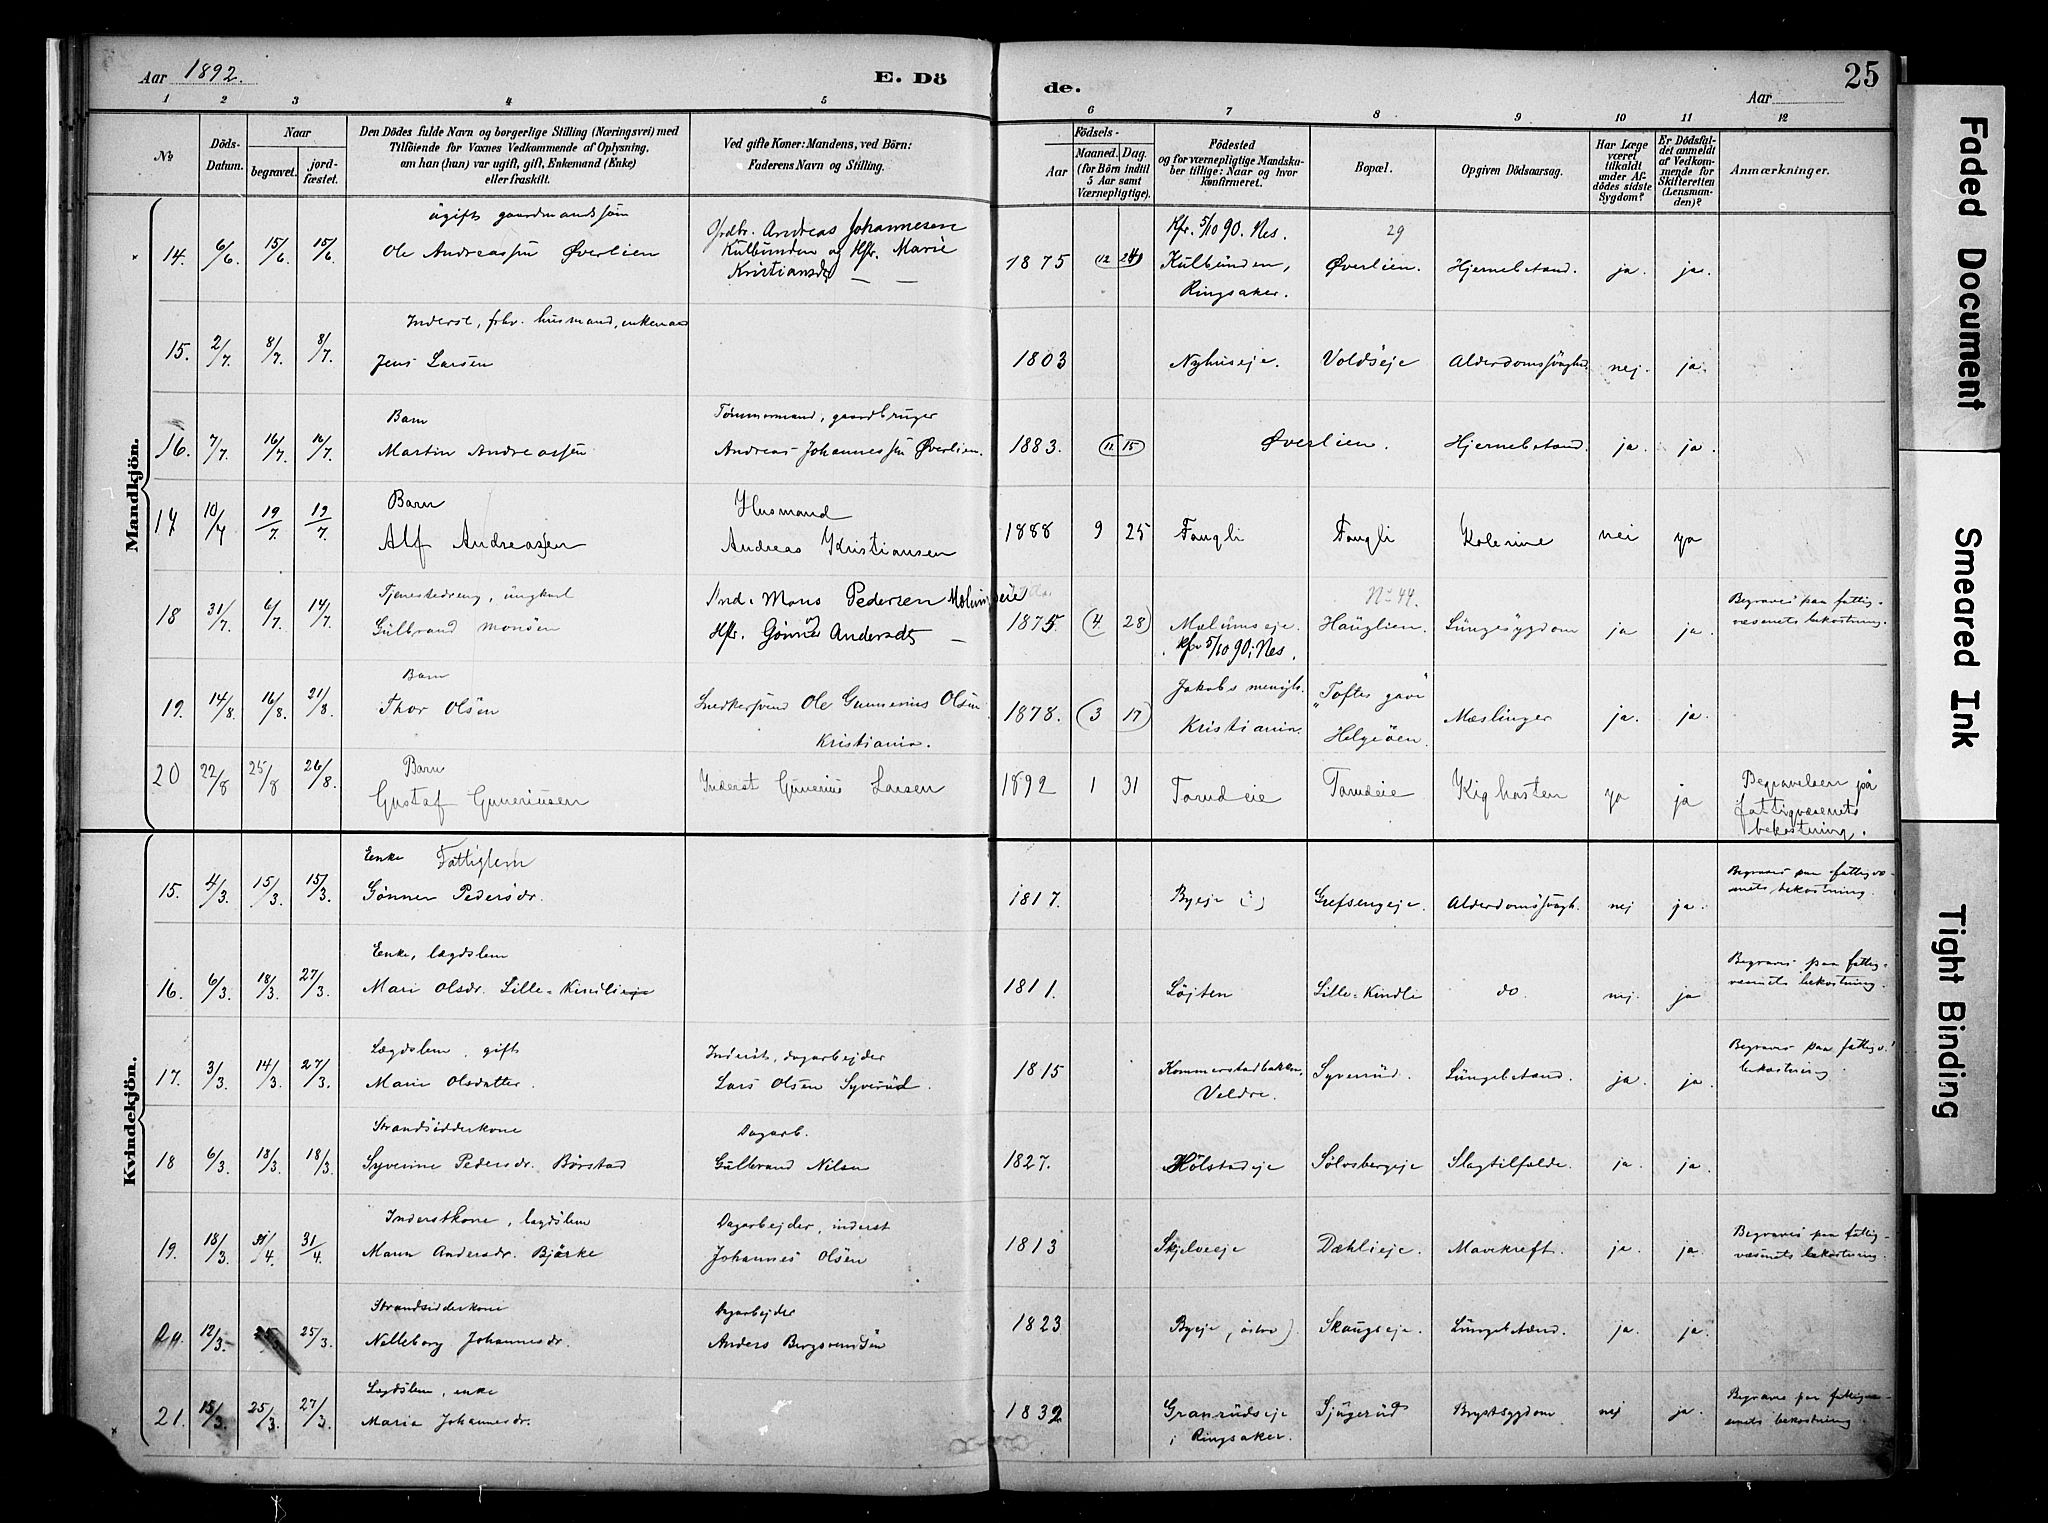 Aar 1892.
E. Dö
de.
Aar
25
1 2 3 4 5 6 7 8 9 10 11 12
No
Döds-
Datum.
Naar
begravet.
jord-
fæstet.
Den Dödes fulde Navn og borgerlige Stilling (Næringsvei) med
Tilföiende for Voxnes Vedkommende af Oplysning,
om han (hun) var ugift, gift, Enkemand (Enke)
eller fraskilt.
Ved gifte Koner: Mandens, ved Börn:
Faderens Navn og Stilling.
Födsels-
Aar
Maaned. Dag.
(for Börn indtil
5 Aar samt
Værnepligtige).
Födested
og for værnepligtige Mandska-
ber tillige: Naar og hvor
konfirmeret.
Bopæl.
Opgiven Dödsaarsag.
Har Læge
været
tilkaldt
under Af-
dödes sidste
Sygdom?
Er Dödsfal-
det anmeldt
af Vedkom-
mende for
Skifteretten
(Lensman-
den)?
Anmærkninger.
Mandkjön.
ugift gaardmandssøn
Grdbr. Andreas Johannesen
Kfr. 5/10 90. Nes.
29
14. 6/6. 15/6. 15/6. Ole Andreassen Øverlien
Kulbunden og Hfr. Marie
Kristiansdr — —
1875 12 24 Kulbunden, Øverlien. Hjernebetænd. ja. ja.
Ringsaker.
Inderst, fhv. husmand, enkemand
15. 2/7. 8/7. 8/7. Jens Larsen 1803 Nyhuseje. Voldseje Alderdomssvaghed. nej. ja.
Barn
Tømmermand, gaardbruger
16. 7/7. 16/7. 16/7. Martin Andreassen Andreas Johannessen Øverlien. 1883. 11 15 Øverlien. Hjernebetænd. ja. ja.
Barn
Husmand
17 10/7 19/7. 19/7. Alf Andreassen Andreas Kristiansen 1888 9 25 Fangli Fangli Kolerine nei ja
Tjenestedreng, ungkarl
Ind. Mons Pedersen Mælumseie
No 44.
Begraves paa fattig-
væsenets bekostning.
18 31/7. 6/7. 14/7. Gulbrand Monsen Hfr. Gønner Andersdt — 1875 4 28 Mælumseje. Hauglien. Lungesygdom ja ja.
Kfr 5/10 90 i Nes.
Barn
Jakobs menigh.
"Toftes gave"
19. 14/8. 16/8. 21/8. Thor Olsen Snedkersvend Ole Gunnerius Olsen 1878. 3 17 Kristiania. Helgeøen. Mæslinger ja. ja.
Kristiania.
Barn
20 22/8 25/8 26/8. Gustaf Guneriusen Inderst Gunerius Larsen 1892 1 31 Tarudeie Tarudeie Kighosten ja ja
Begravelsen på
fattigvæsenets
bekostning.
Kvindekjön.
Enke Fattiglem
15. 4/3. 15/3. 15/3. Gønner Pedersdr. 1817. Byeje Grefsengeje. Alderdomssvagh. nej ja.
Begraves paa fattigvæ-
senets bekostning.
Enke, lægdslem
16. 6/3. 18/3. 27/3. Mari Olsdr. Lille-Kindlieje 1811. Løjten Lille-Kindli do. nej. ja
Begraves paa fattig-
væsenets bekostning.
Lægdslem, gift
Inderst, dagarbejder
17. 3/3. 14/3. 27/3. Marie Olsdatter. Lars Olsen Syverud. 1815 Kommerstadbakken, Syverud. Lungebetænd. ja. ja.
Veldre.
Begraves paa fattigv.
bekostning.
Strandsidderkone
Dagarb.
18 6/3. 18/3. 18/3. Syverine Pedersdr. Børstad Gulbrand Nilsen 1827. Hölstadeje Sölvsbergeje. Slagtilfælde. ja. ja.
Inderstkone, lægdslem
Dagarbejder, inderst
19. 18/3. 31/4. 31/4 Maren Andersdr. Bjørke Johannes Olsen 1813 Skjelveeje Dæhlieje. Mavekræft. ja. ja.
Begraves paa fattig-
væsenets bekostning.
Strandsidderkone
Dagarbejder
20. 12/3. 25/3. Nelleborg Johannesdr. Anders Bergsvendsen 1823 Byeje, (østre) Skaugseje. Lungebetænd. ja. ja.
Lægdslem, enke
21. 15/3. 25/3. 27/3. Marie Johannesdr. 1832 Granrudseje Sjugerud Brystsygdom nej ja.
i Ringsaker.
Begraves paa fattigvæ-
senets bekostning.
Faded Document
Smeared Ink
Tight Binding